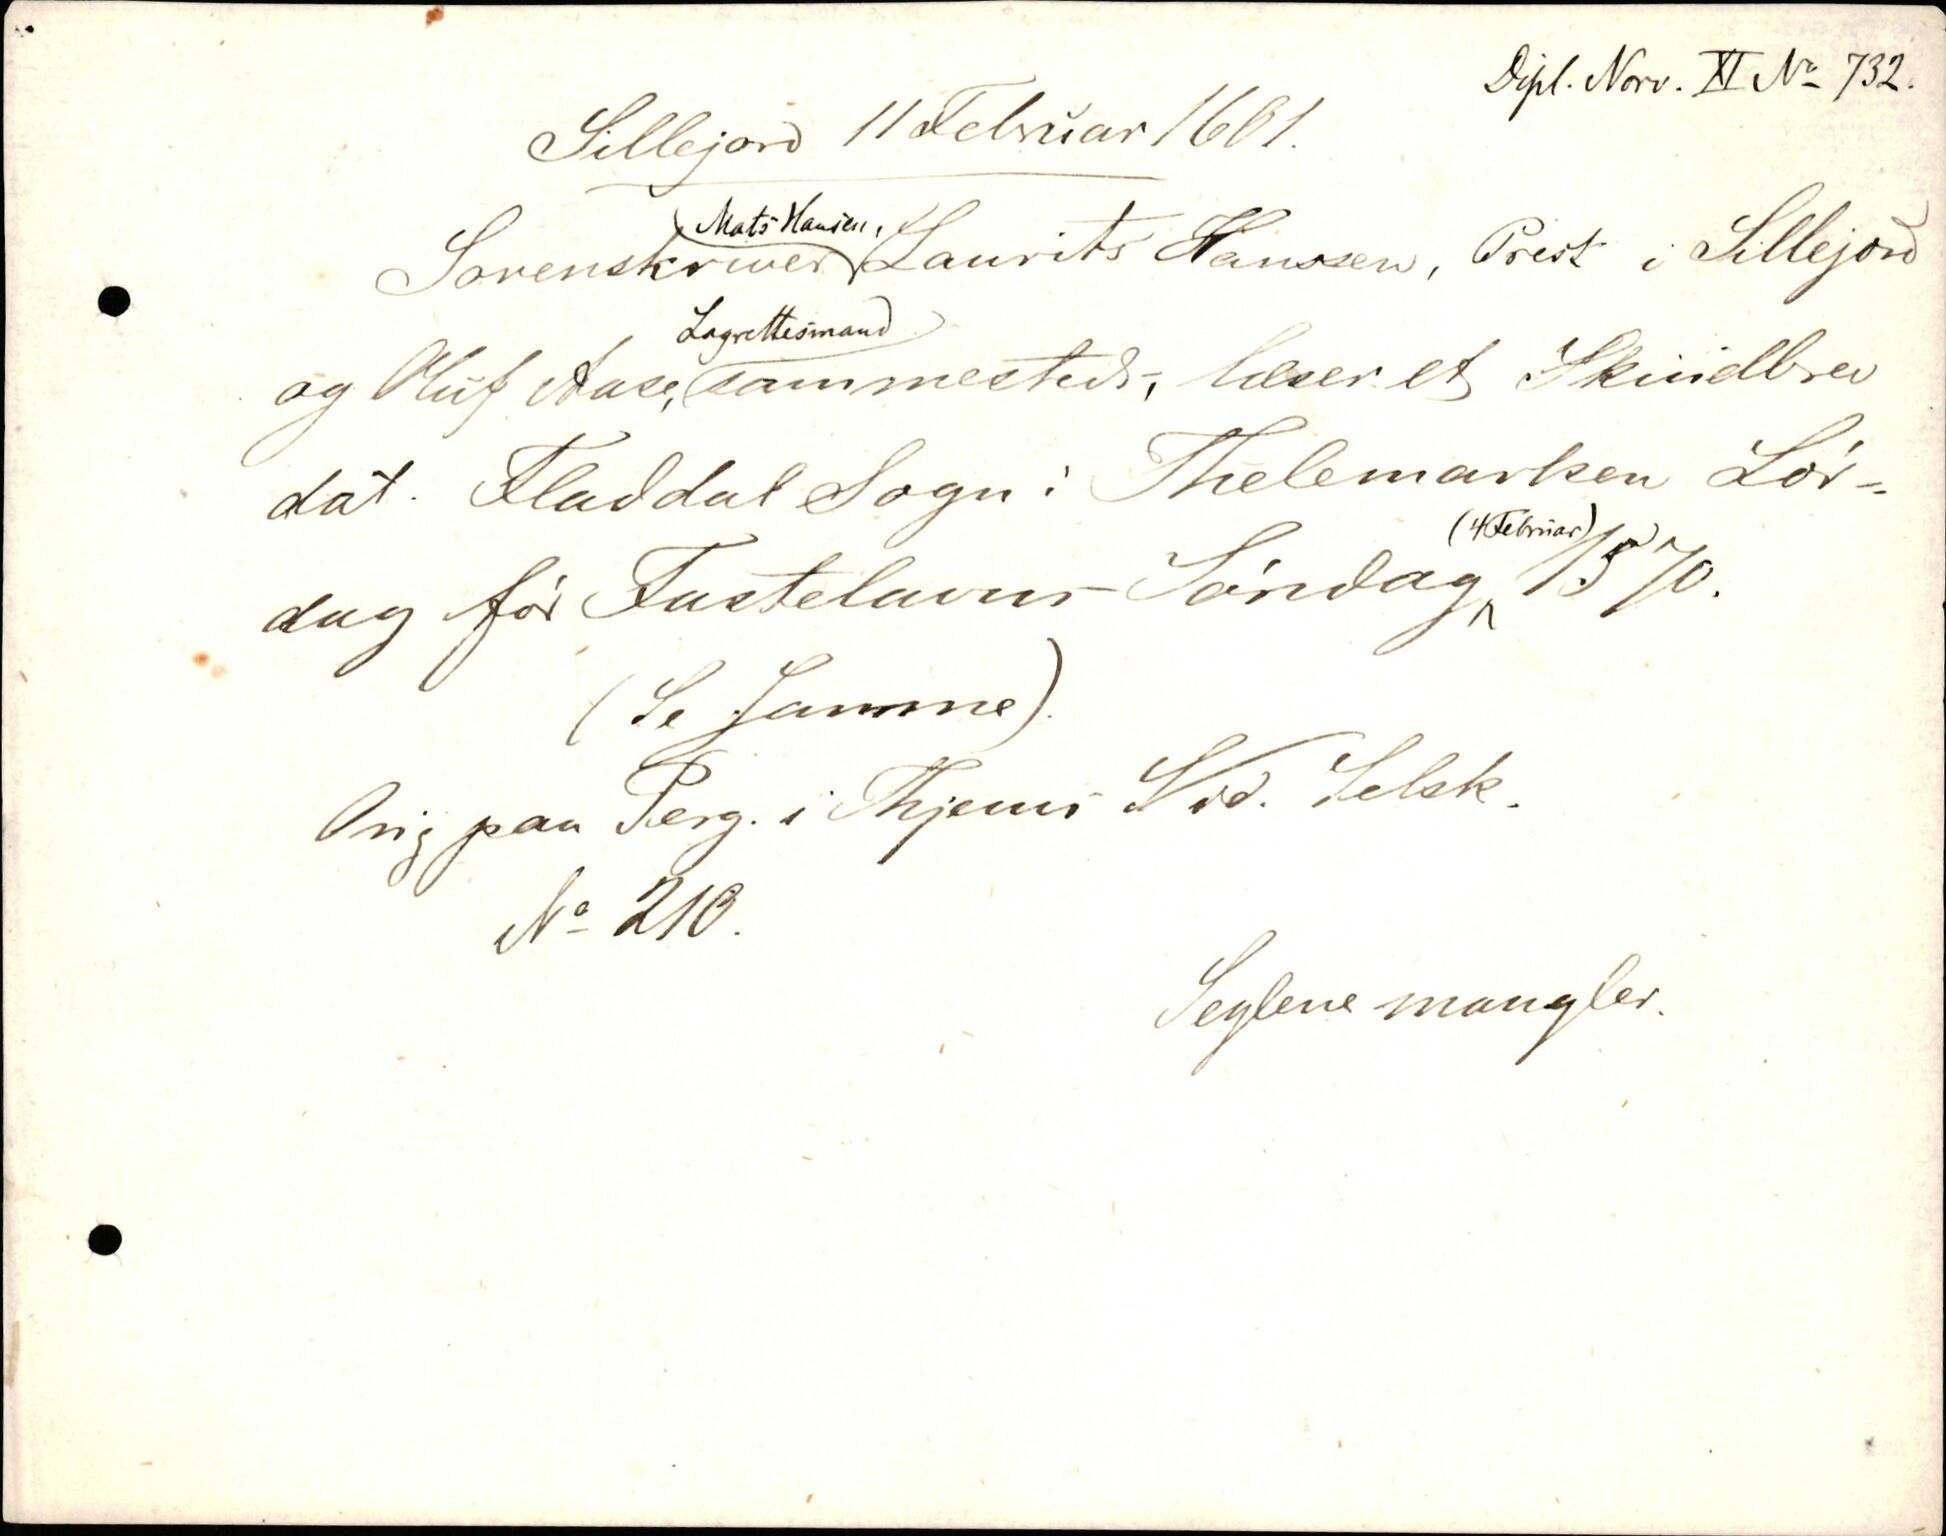 Dipl. Norv. XI No 732.
Sillejord 11 Februar 1661.
Mats Hansen,
Sorenskriver Laurits Hanssen, Prest i Sillejord
Lagrettesmand
og Oluf Aase, sammesteds, læser et Skindbrev
dat. Fladdal Sogn i Thelemarken Lör-
(4 Februar)
dag för Fastelavns Söndag 1570.
(Se Samme).
Orig paa Perg. i Thjems Vid. Selsk.
No 210.
Seglene mangler.